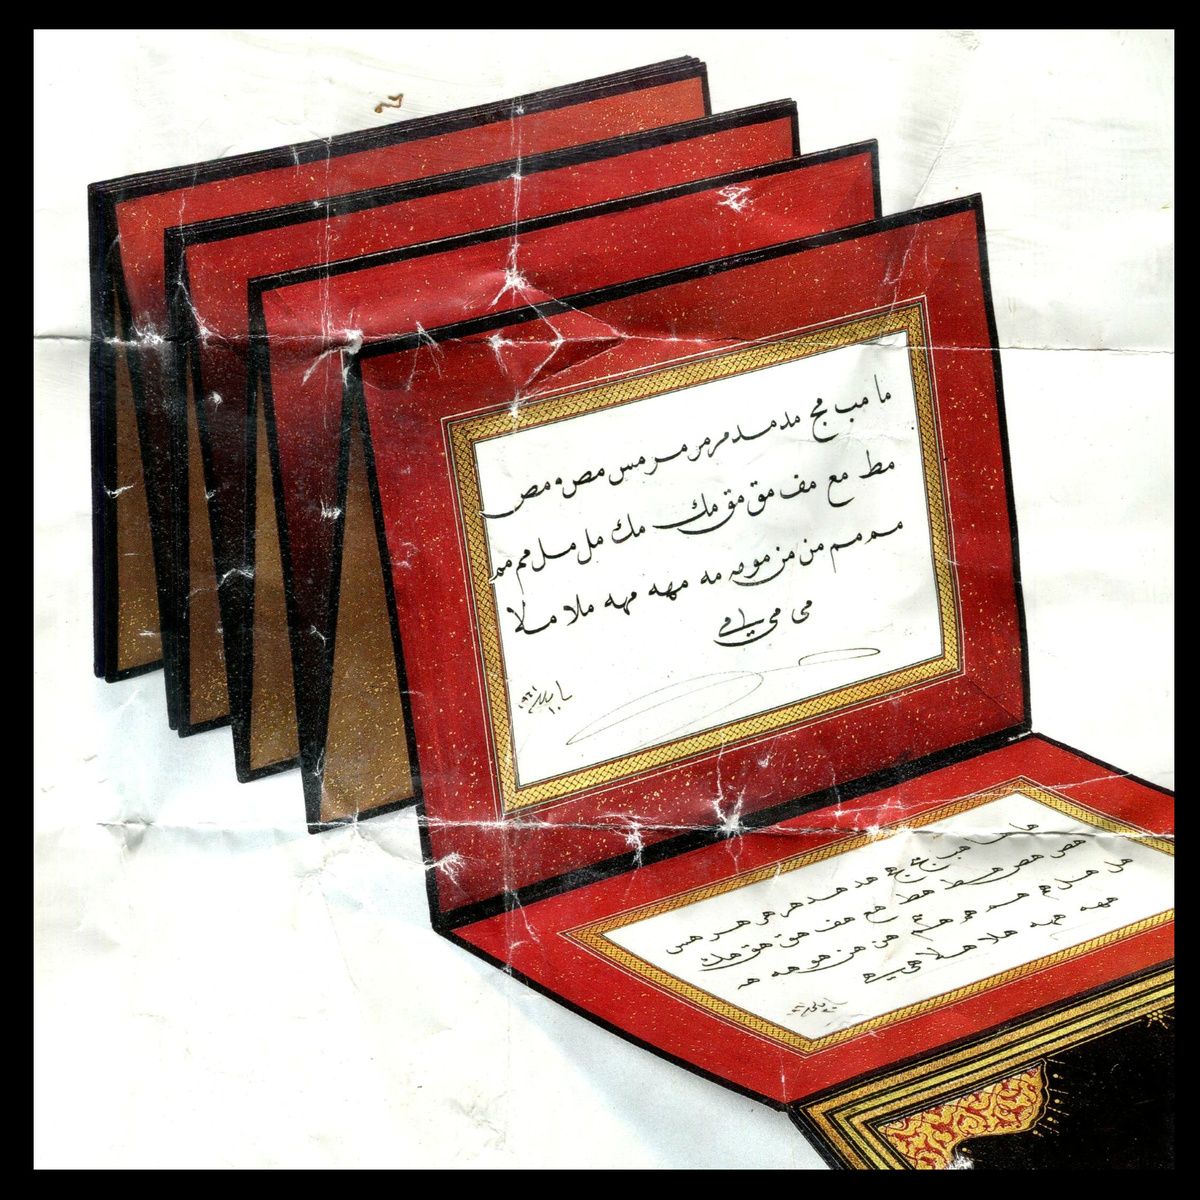 ما مب مج مد مد مر مر مر مس مص و مص
مط مع مف مق مق مك مك مل مل مم مم
مم مم من من مو مه مه مهه مهه ملا ملا
مى مى مے
١٩٦١
ها هب هج هج هد هد هر هر هر هس
هص هص هط هط هع هف هق هق هك
هل هل هم هم هم هم هن هن هو هه هه
ههه ههه هلا هلا هى هے